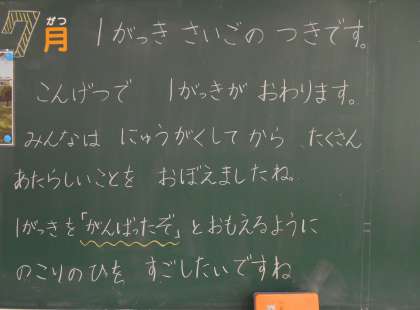 7月 1がっき さいごの つきです。
がつ
こんげつで 1がっきが おわります。
みんなは にゅうがくして から たくさん
あたらしいことを おぼえましたね。
1がっきを「がんばったぞ」とおもえるように
のこりのひを すごしたいですね